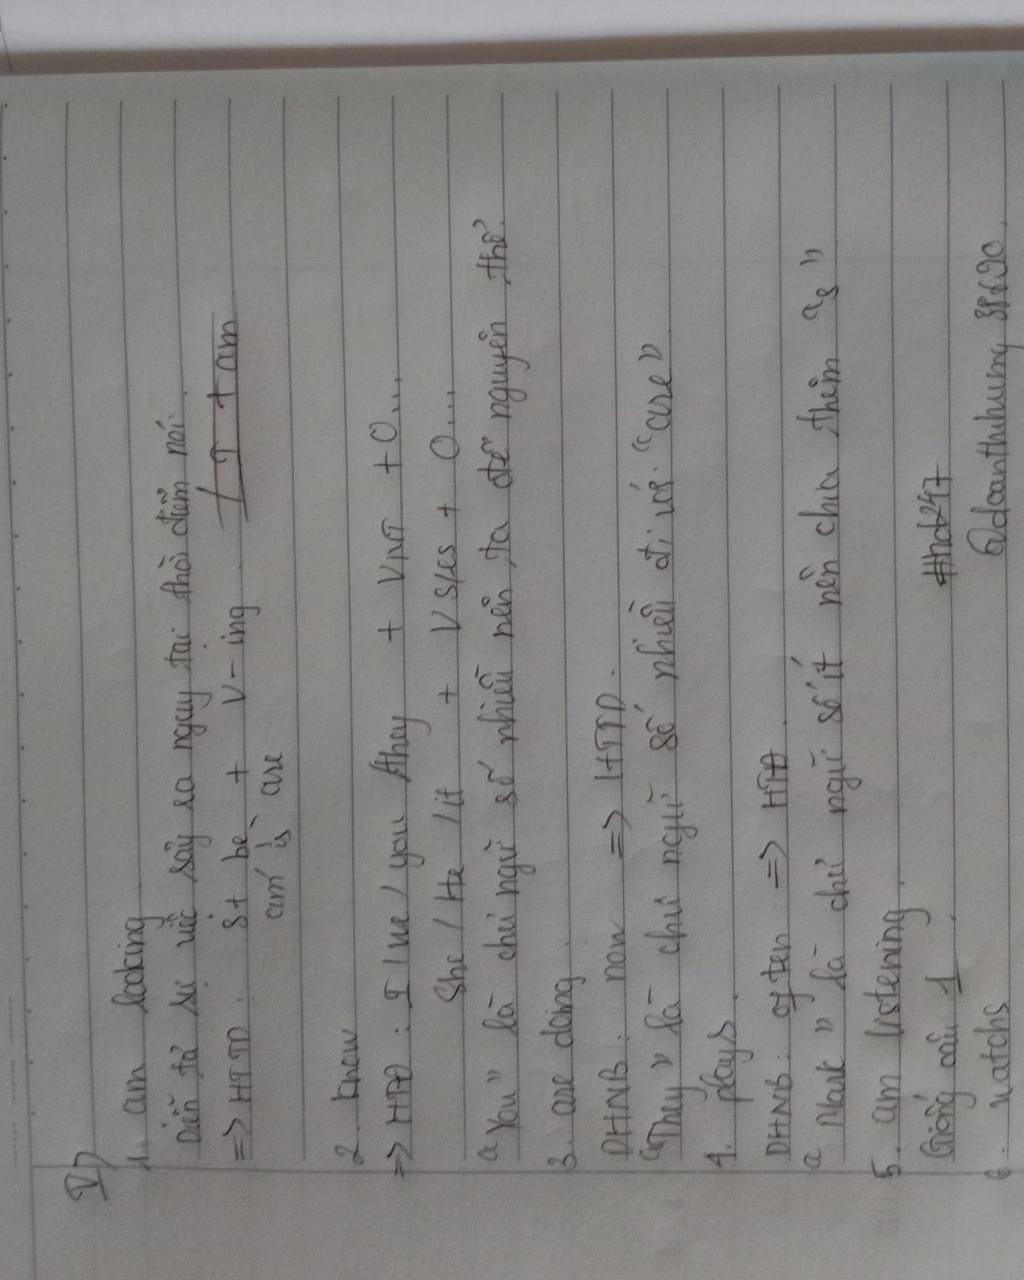 V,
1. am looking
Diễn tả sự việc sảy ra ngay tại thời điểm nói.
=> HTTD. S + be + V-ing / I + am
am is are
2. know
=> HTĐ : I / we / you / they + VNT + O...
She / He / it + V s/es + O...
" You " là chủ ngữ số nhiều nên ta để nguyên thể.
3. are doing.
DHNB: now => HTTD.
" They " là chủ ngữ số nhiều đi với "are"
4. plays.
DHNB: often => HTĐ
" Mark " là chủ ngữ số ít nên chia thêm " s "
5. am listening.
Giống câu 1 #hd247
6. watchs @doanthihuong38690.